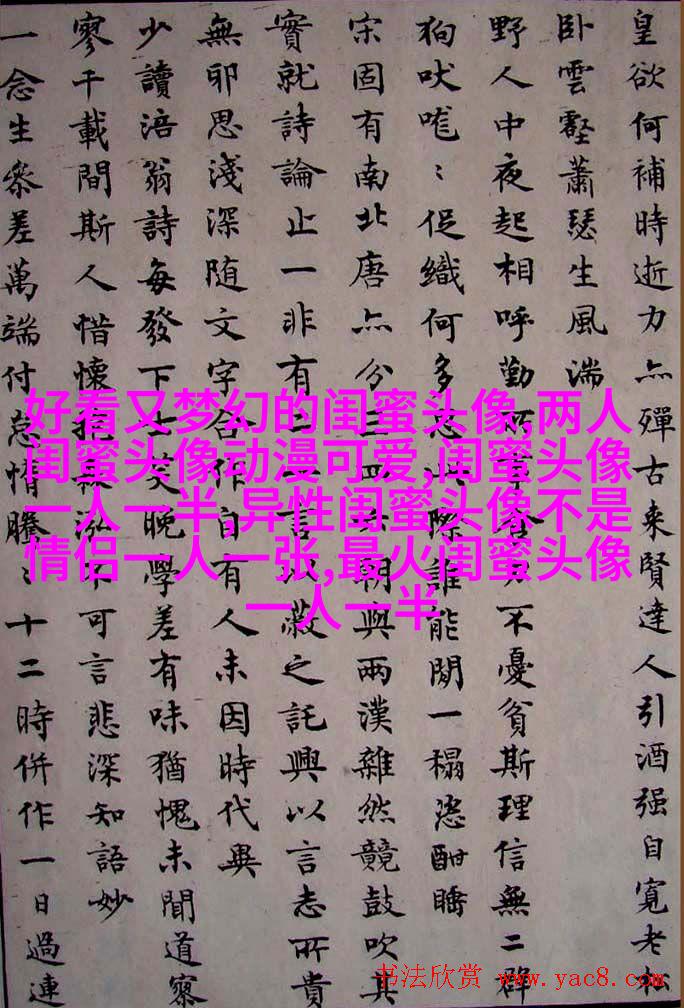 皇欲何補時逝力亦殫古来賢達人引酒强自寬老
卧雲壑蕭瑟生風湍
野人中夜起相呼勤不憂貧斯理信無二群
狗吠唯〻促織何多際誰能閲一榻恣酣睡
宋固有南北唐亦分三四朝與兩漢雜然競鼓吹其
實就詩論止一非有二一言以蔽之託興以言志所貴
無邪思淺深随文字合作自有人未因時代異
少讀涪翁詩每發下士笑晚學差有味猶愧未聞道察
寥千載間斯人惜懷抱泓不可言悲深知語妙
一念生參差萬端付怠惰騰〻十二時併作一日過連
好看又梦幻的闺蜜头像,两人
闺蜜头像动漫可爱,闺蜜头像
一人一半,异性闺蜜头像不是
情侣一人一张,最火闺蜜头像
一人一半
书法欣赏 www.yac8.com